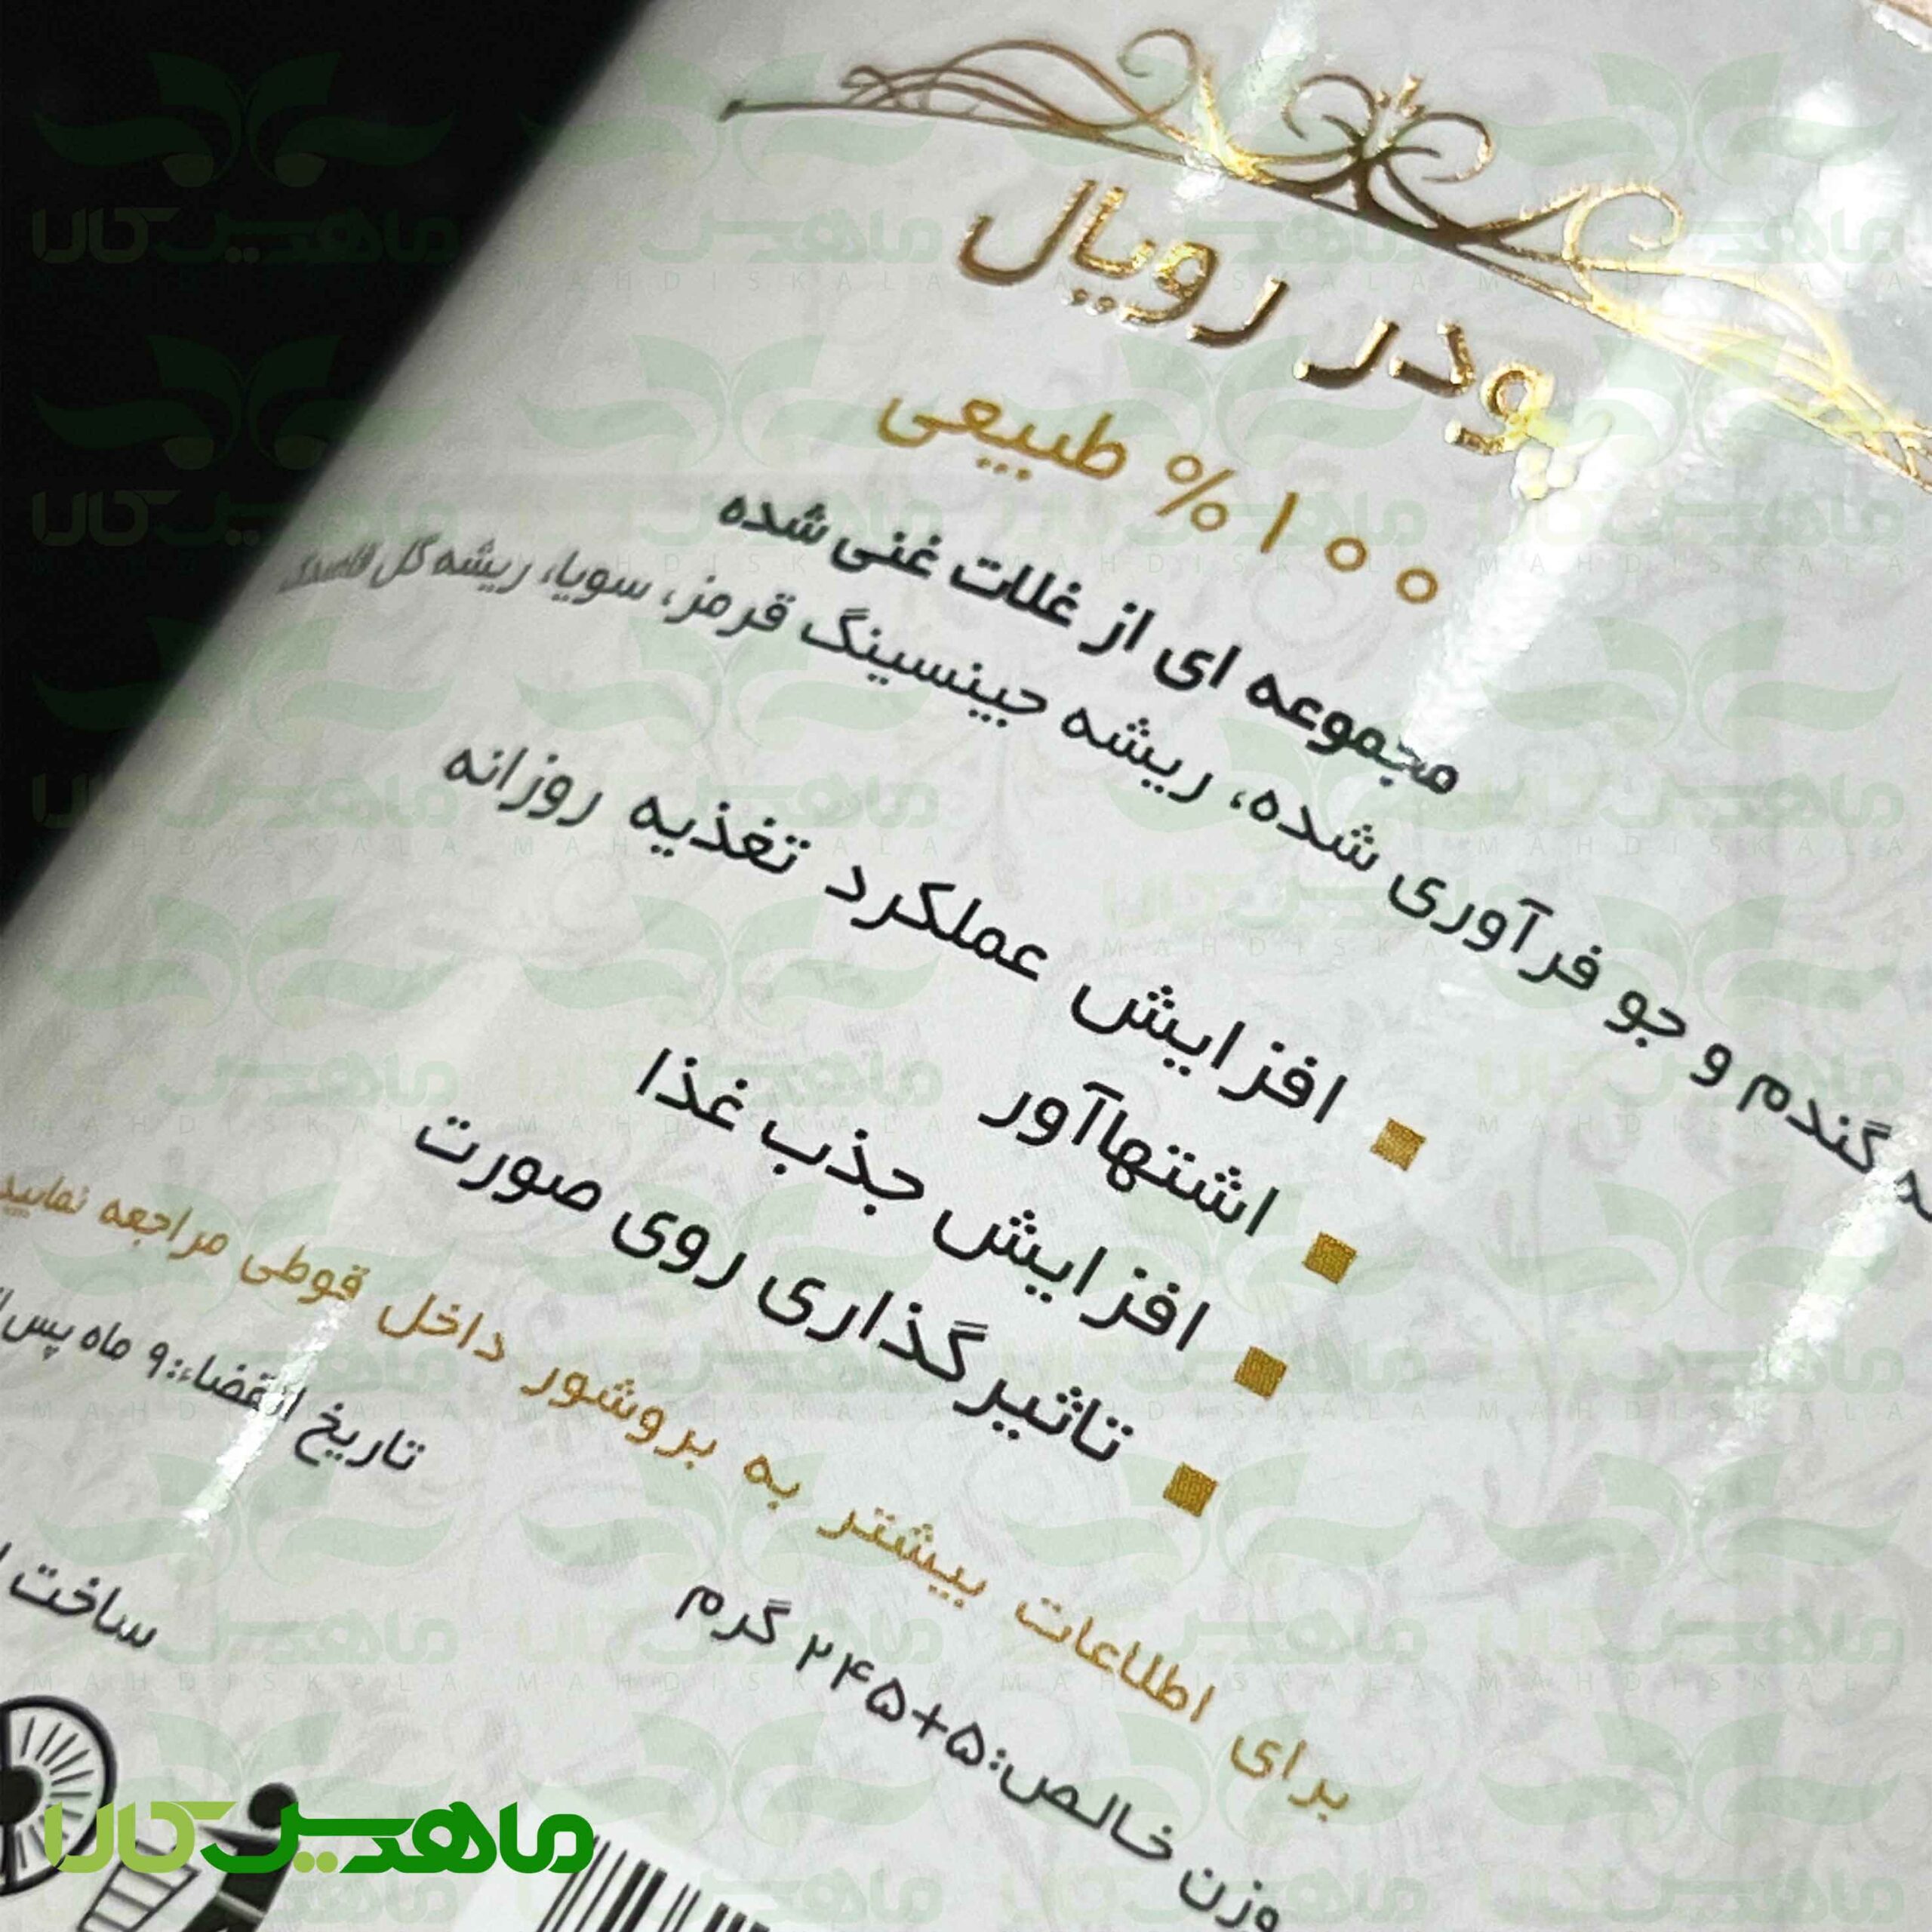 پودر رویال
۱۰۰% طبیعی
مجموعه ای از غلات غنی شده
گندم و جو فرآوری شده، ریشه جینسینگ قرمز، سویا، ریشه گل قاصدک
افزایش عملکرد تغذیه روزانه
اشتهاآور
افزایش جذب غذا
تاثیرگذاری روی صورت
برای اطلاعات بیشتر به بروشور داخل قوطی مراجعه نمایید
وزن خالص:۵+۲۴۵ گرم
تاریخ انقضاء:۹ ماه پس
ساخت
ماهدیس کالا
MAHDISKALA